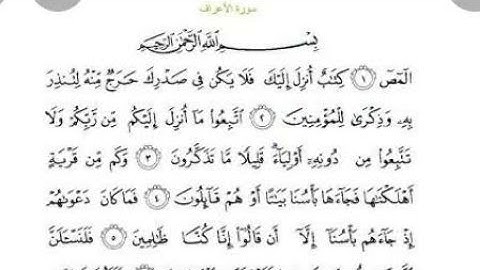 سورة الأعراف
بِسْمِ اللَّهِ الرَّحْمَٰنِ الرَّحِيمِ
الٓمٓصٓ ١ كِتَٰبٌ أُنزِلَ إِلَيْكَ فَلَا يَكُن فِى صَدْرِكَ حَرَجٌ مِّنْهُ لِتُنذِرَ
بِهِۦ وَذِكْرَىٰ لِلْمُؤْمِنِينَ ٢ ٱتَّبِعُوا۟ مَآ أُنزِلَ إِلَيْكُم مِّن رَّبِّكُمْ وَلَا
تَتَّبِعُوا۟ مِن دُونِهِۦٓ أَوْلِيَآءَ ۗ قَلِيلًا مَّا تَذَكَّرُونَ ٣ وَكَم مِّن قَرْيَةٍ
أَهْلَكْنَٰهَا فَجَآءَهَا بَأْسُنَا بَيَٰتًا أَوْ هُمْ قَآئِلُونَ ٤ فَمَا كَانَ دَعْوَىٰهُمْ
إِذْ جَآءَهُم بَأْسُنَآ إِلَّآ أَن قَالُوٓا۟ إِنَّا كُنَّا ظَٰلِمِينَ ٥ فَلَنَسْـَٔلَنَّ